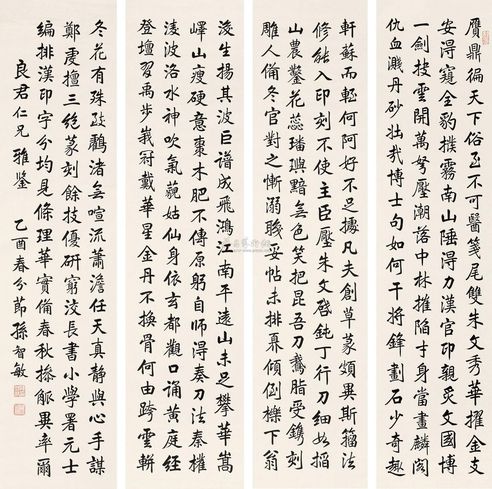 贗鼎徧天下俗不可醫箋尾雙朱文秀華擢
安得窺全豹霧南山陲得力漢官印親炙文國博
一劍抉雲開萬弩壓潮落中林摧陷才身當畫麟閣
仇血濺丹砂壯哉博士句如何干將鋒劃石少奇趣
軒蘇而輊何阿好不足據凡夫創草篆頗異斯籀法
修能入印刻不使主臣壓朱文啓鈍丁行刀細如掐
山農鑿花蕊璠璵黯無色笑把昆吾刀鵞脂受鐫刻
雕人備冬官對之慚溺職妥帖未排奡傾倒櫟下翁
浚生揚其波巨譜成飛鴻江南平遠山未足攀華嵩
嶧山瘦硬意棗木肥不傳原躬自師得秦刀法秦權
淩波洛水神吹氣藐姑仙身依玄都觀口誦黃庭經
登壇習禹步峩冠戴華星金丹不換骨何由跨雲軿
冬花有殊致鸝渚無喧流蕭澹任天真靜與心手謀
鄭虔擅三絕篆刻餘技優研窮洨長書小學署元士
編排漢印字分均見條理華實備春秋摻觚異率爾
良君仁兄雅鑒 乙酉春分節孫智敏